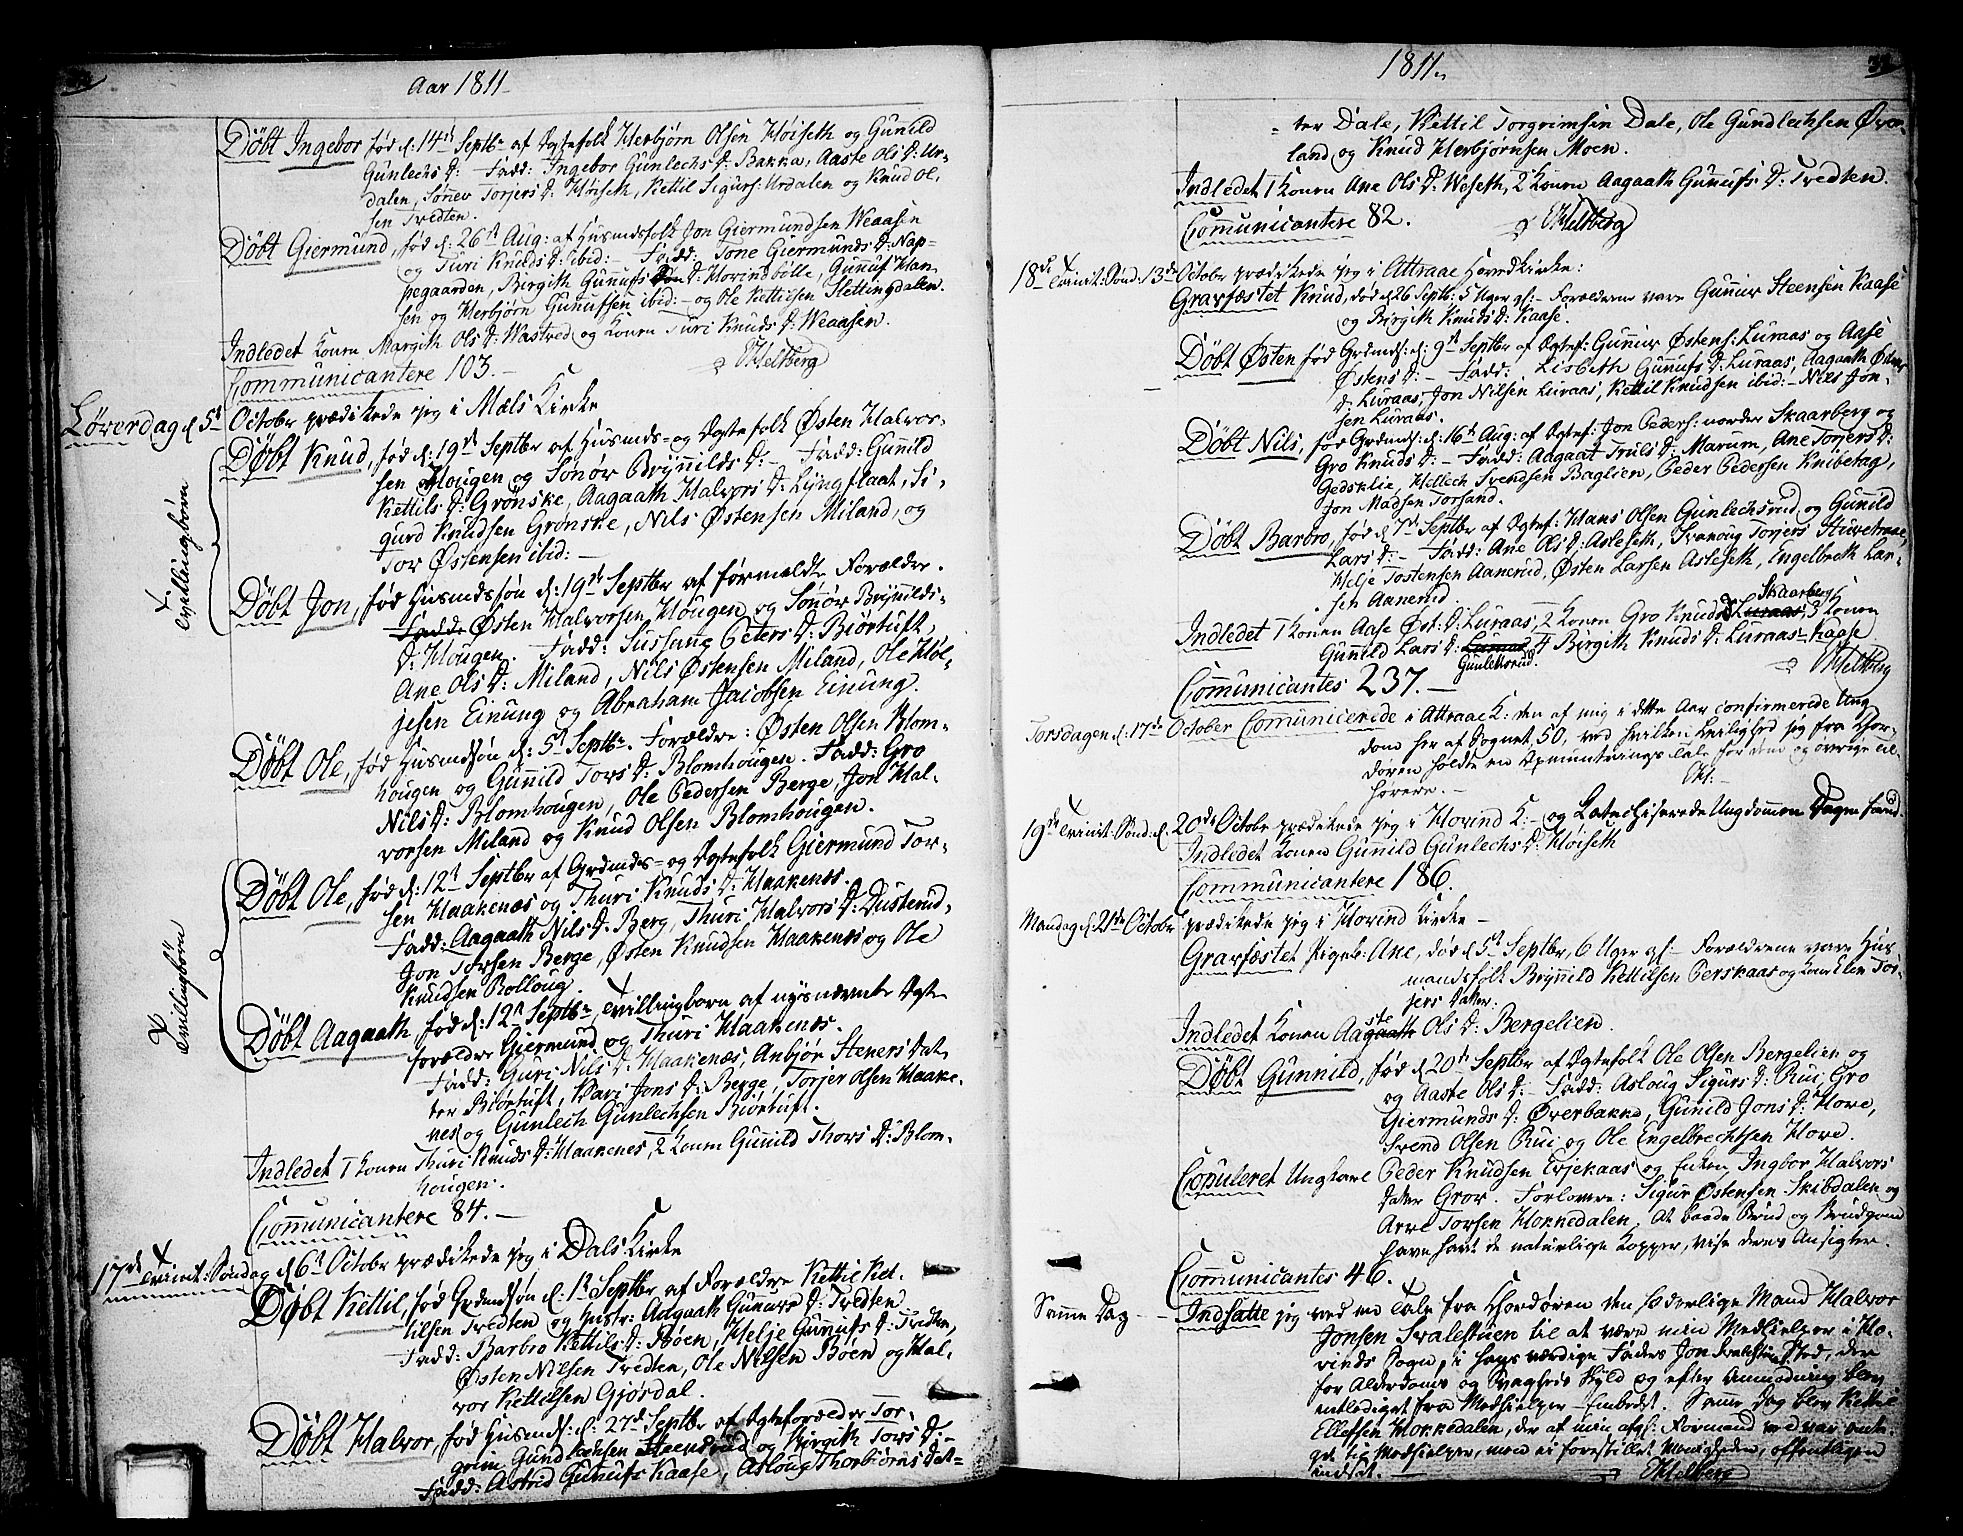 Aar 1811
Døbt Ingebor fød d: 14de Septbr af Ægtefolk Herbjørn Olsen Høiseth og Gunnild
Gunlechs D: Fadd: Ingebor Gunlechs D: Bakka, Aaste Ols D: Ur-
dalen, Sønnev Torjers D: Høiseth, Kettil Sigurs: Urdalen og Knud Ol-
sen Tredten.
Døbt Giermund, fød d: 26de Aug: af Husmdsfolk Jon Giermundsen Weaasen
og Turi Knuds D: ibid:- Fadd: Tone Giermunds D: Nap-
pegaarden, Birgith Gunufs D: Hovindbølle, Gunuf Han-
sen og Herbjørn Gunufsen ibid:- og Ole Kettilsen Slettingdalen.
Indledet Konen Margith Ols D: Wastved og Konen Turi Knuds D: Weaasen.
Communicantere 103.- Heltberg
Løverdag d 5te October prædikede jeg i Mæls Kirke
Døbt Knud, fød d: 19de Septbr af Husmds- og Ægtefolk Østen Halvor-
sen Hougen og Sønør Brynnilds D:- Fadd: Gunnild
Kettils D: Grønske, Aagaath Halvors D: Lyngflaat, Si-
gurd Knudsen Grønske, Nils Østensen Miland, og
Tor Østensen ibid:-
Tvillingbørn
Døbt Jon, fød Husmdsøn d: 19de Septbr af førmeldte Forældre.
Fadd: Østen Halvorsen Hougen og Sønør Brynnilds-
D: Hougen. Fadd: Sussane Peters D: Biørtuft,
Ane Ols D: Miland, Nils Østensen Miland, Ole Høl-
jesen Einung og Abraham Jacobsen Einung.
Døbt Ole, fød Husmdsøn d: 5te Septbr. Forældre: Østen Olsen Blom-
hougen og Gunnild Tors D: Blomhougen. Fadd: Gro
Nils D: Blomhougen, Ole Pedersen Berge, Jon Hal-
vorsen Miland og Knud Olsen Blomhougen.
Døbt Ole, fød d: 12te Septbr af Grdmds- og Ægtefolk Giermund Tor-
sen Haakenæs og Thuri Knuds D: Haakenæs.
Fadd: Aagaath Nils D: Berg, Thuri Halvors D: Dusterud,
Jon Torsen Berge, Østen Knudsen Haakenæs og Ole
Knudsen Rolloug.
Tvillingbørn
Døbt Aagaath, fød d: 12te Septbr, Tvillingbarn af nysnævnte Ægte
forældre Giermund og Thuri Haakenæs.
Fadd: Guri Nils D: Haakenæs, Anbjør Steners Dat-
ter Biørtuft, Kari Jons D: Berge, Torjer Olsen Haake-
nes og Gunlech Gunlechsen Biørtuft.
Indledet 1 Konen Thuri Knuds D: Haakenes, 2 Konen Gunild Thors D: Blom-
hougen.
Communicantere 84.-
17de Trinit: Søndag d 6te October prædikede jeg i Dals Kirke
Døbt Kettil, fød Grdmdsøn d: 1te Septbr af Forældre Kettil Ket-
tilsen Tredten og Hustr: Aagaath Gunufs D: Tredten
Fadd: Barbro Kettils D: Bøen, Helje Gunufs D: Tredten,
Østen Nilsen Tredten, Ole Nilsen Bøen og Hal-
vor Kettilsen Gjøsdal.
Døbt Halvor, fød Husmds: d: 27de Septbr af Ægteforældre Tor-
grim Gundlechsen Steensrud og Birgith Tors D:-
Fadd: Astrid Gunufs Kaase, Asloug Thorbiørns Dat-
1811.
ter Dale, Kettil Torgrimsen Dale, Ole Gundlechsen Øver-
land og Knud Herbjørnsen Moen.
Indledet 1 Konen Ane Ols D: Weseth, 2 Konen Aagaath Gunufs D: Tredten.
Communicantere 82. Heltberg
18de Trinit: Sønd: 13de October prædikede jeg i Attraae Hovedkirke:
Gravfæstet Knud, død d 26 Septb: 5 Uger gl:- Forældrene vare Gunnur Steensen Kaase
og Birgith Knuds D: Kaase.
Døbt Østen fød Grdmds: d: 9de Septbr af Ægtef: Gunnur Østens: Luraas og Aase
Østens D:- Fadd: Lisbeth Gunnufs D: Luraas, Aagaath Østens
D: Luraas, Jon Nilsen Luraas, Kettil Knudsen ibid:- Nils Jon-
sen Luraas.
Døbt Nils, fød Grdmds: d: 16de Aug: af Ægtef: Jon Peders: norder Skaarberg og
Gro Knuds D:- Fadd: Aagaat Truls D: Marum, Ane Torjers D:
Gedsklie, Hellech Svendsen Baglien, Peder Pedersen Knibetag,
Jon Madsen Torsand.
Døbt Barbro, fød d 7de Septbr af Ægtef: Hans Olsen Gunlechsrud og Gunnild
Lars D:- Fadd: Ane Ols D: Asleseth, Svanoug Torjers Huvetraae,
Helje Tostensen Aanerud, Østen Larsen Asleseth, Engelbreth Lar-
sen Aanerud.
Indledet 1 Konen Aase Øst: D: Luraas, 2 Konen Gro Knuds D: Luraas Skaarberg, 3 Konen
Gunnild Lars D: Luraas Gunleksrud. 4 Birgith Knuds D: Luraas- Kaase
Communicantes 237.- Heltberg
Torsdagen d: 17de October Comunicerede i Attraae K: den af mig i dette Aar confirmerede Ung
dom her af Sognet, 50, ved hvilken Leilighed jeg fra Chor-
døren holdte en Opmuntrings Tale for dem og øvrige Til-
hørere.-
19de Trinit: Sønd: d. 20de Octobr prædikede jeg i Hovind K:- og Catechiserede Ungdommen Dagen forud.
Indledet Konen Gunnild Gunlechs D: Høiseth
Communicantere 186.
Mandag d: 21de October prædikede jeg i Hovind Kirke-
Gravfæstet Pigeb: Ane, død d 5te Septbr, 6 Uger gl- Forældrene vare Hus
mandsfolk Brynnild Kettilsen Perskaas og Konen Liv Tor-
jers Datter.
Indledet Konen Aagaath ste Ols D: Bergelien.
Døbt Gunnild, fød d 20de Septbr af Ægtefolk Ole Olsen Bergelien og
og Aaste Ols D:- Fadd: Asloug Sigurs D: Rui, Gro
Giermunds D: Øverbakke, Gunild Jons D: Hove,
Svend Olsen Rui og Ole Engelbrechtsen Hove.
Copuleret Ungkarl Peder Knudsen Ejekaas og Enken Ingbor Halvors
Datter Grov. Forlovere: Sigur Østensen Skibdalen og
Arne Torsen Honnedalen. At baade Brud og Brudgom
have havt de naturlige Kopper, vise deres Ansigter.
Communicantes 46.
Samme Dag - Indsatte jeg ved en Tale fra Chordøren den hæderlige Mand Halvor
Jonsen Svalestuen til at være min Medhielper i Ho-
vinds Sogn, i hans værdige Faders Jon Svalestuens Sted, der
for Alderdoms og Svagheds Skyld og efter Anmodning blev
entlediget fra Medhielper Embedet. Samme Dag blev Kettil
Ellefsen Honnedalen, der af min afg: Formand vel var anta-
get til Medhielper, men ei forestillet Menigheden, offentligen
indsat.- Heltberg